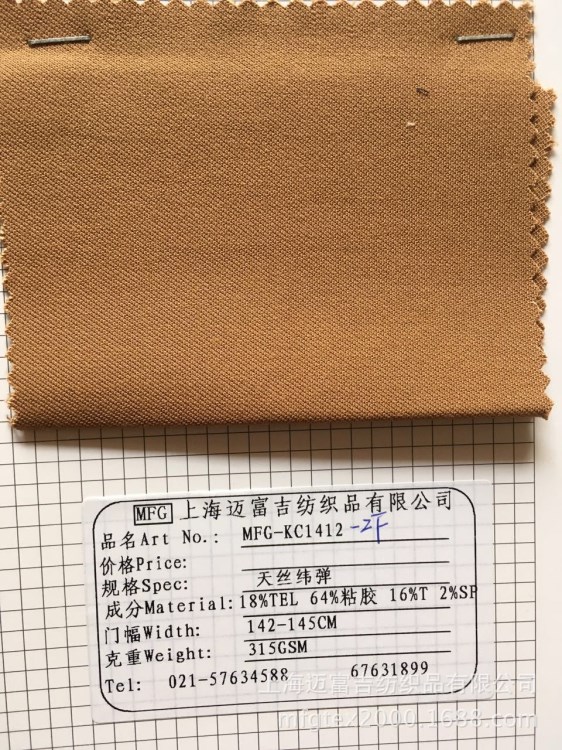 MFG 上海迈富吉纺织品有限公司
品名Art No.: MFG-KC1412
价格Price:
规格Spec: 天丝纬弹
成分Material: 18%TEL 64%粘胶 16%T 2%SP
门幅Width: 142-145CM
克重Weight: 315GSM
Tel: 021-57634588 67631899
上海迈富吉纺织品有限公司
mfgrex2000.1688.com